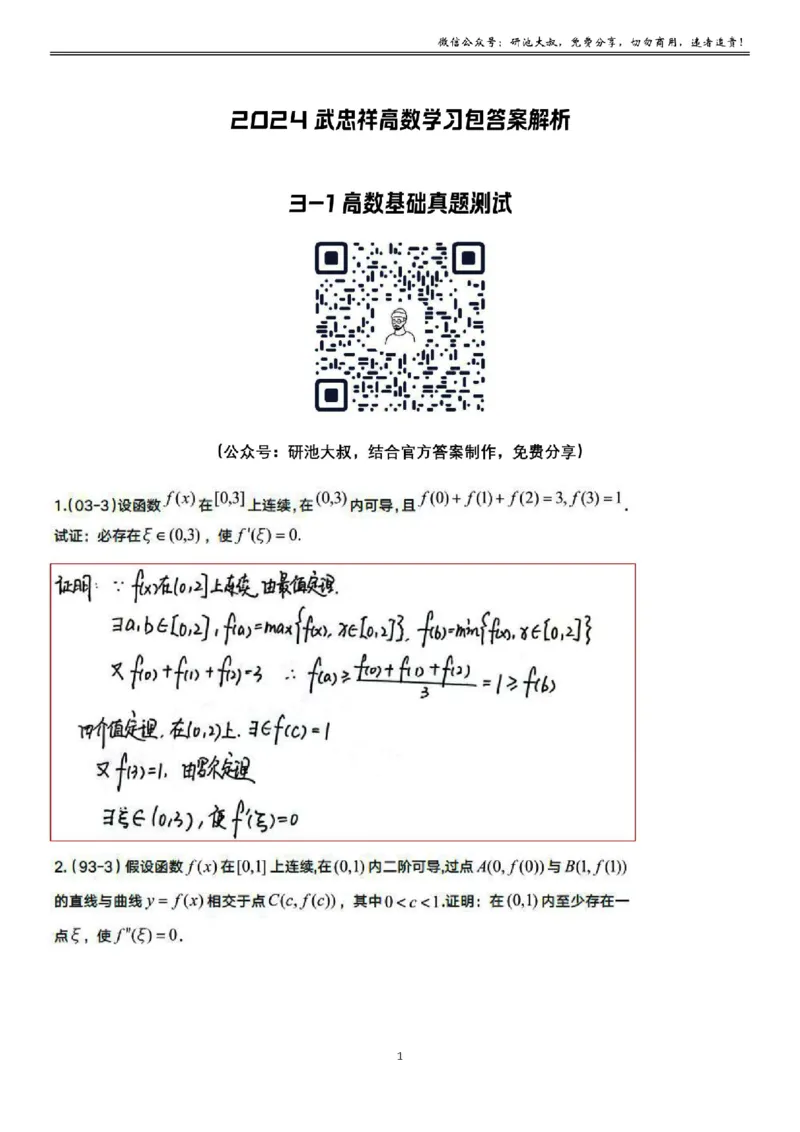 微信公众号：研池大叔，免费分享，切勿商用，违者追责！
2024 武忠祥高数学习包答案解析
3-1 高数基础真题测试
(公众号：研池大叔，结合官方答案制作，免费分享)
1.(03-3)设函数 f(x) 在 [0,3] 上连续,在 (0,3) 内可导,且 f(0)+f(1)+f(2)=3, f(3)=1 .
试证：必存在 ξ∈(0,3) ，使 f'(ξ)=0.
证明：∵ f(x)在[0,2]上连续,由最值定理.
∃a,b∈[0,2], f(a)=max{f(x), x∈[0,2]}, f(b)=min{f(x), x∈[0,2]}
又 f(0)+f(1)+f(2)=3 ∴ f(a)≥(f(0)+f(1)+f(2))/3=1≥f(b)
由介值定理.在[0,2)上.∃∈f(c)=1
又 f(3)=1. 由罗尔定理
∃ξ∈(0,3), 使 f'(ξ)=0
2.(93-3) 假设函数 f(x) 在 [0,1] 上连续,在 (0,1) 内二阶可导,过点 A(0, f(0)) 与 B(1, f(1))
的直线与曲线 y=f(x) 相交于点 C(c, f(c)) ，其中 0<c<1.证明：在 (0,1) 内至少存在一
点 ξ ，使 f"(ξ)=0.
1